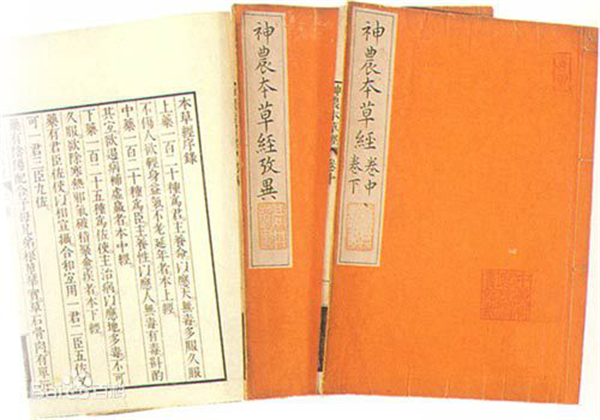 神農本草經 卷中
卷下
神農本草經攷異
本草經序錄
上藥一百二十種爲君主養命以應天無毒多服久服
不傷人欲輕身益氣不老延年者本上經
中藥一百二十種爲臣主養性以應人無毒有毒斟酌
其宜欲遏病補虛羸者本中經
下藥一百二十五種爲佐使主治病以應地多毒不可
久服欲除寒熱邪氣破積聚愈疾者本下經
藥有君臣佐使以相宣攝合和宜用一君二臣五佐又
可一君三臣九佐
藥有陰陽配合子母兄弟根莖華實草石骨肉有單行
Baidu百科